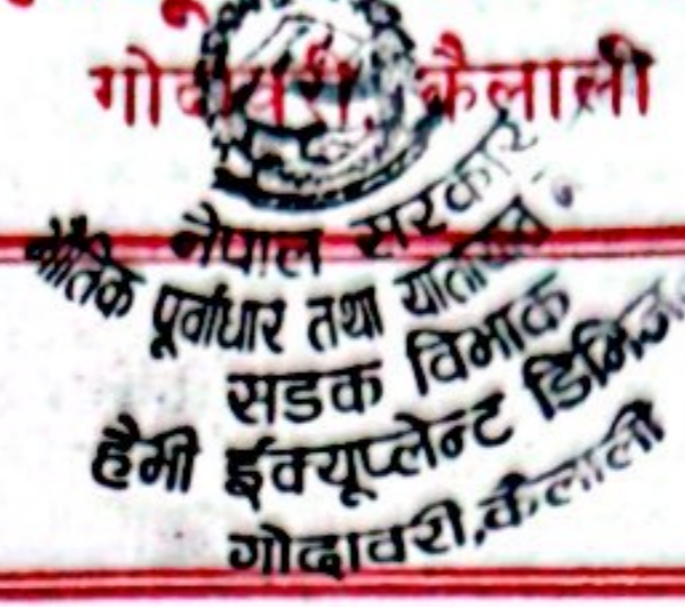 गोदावरी, कैलाली
नेपाल सरकार
भौतिक पूर्वाधार तथा यातायात
सडक विभाक
हैमी ईक्यूप्लेन्ट डिभिजन
गोदावरी,कैलाली